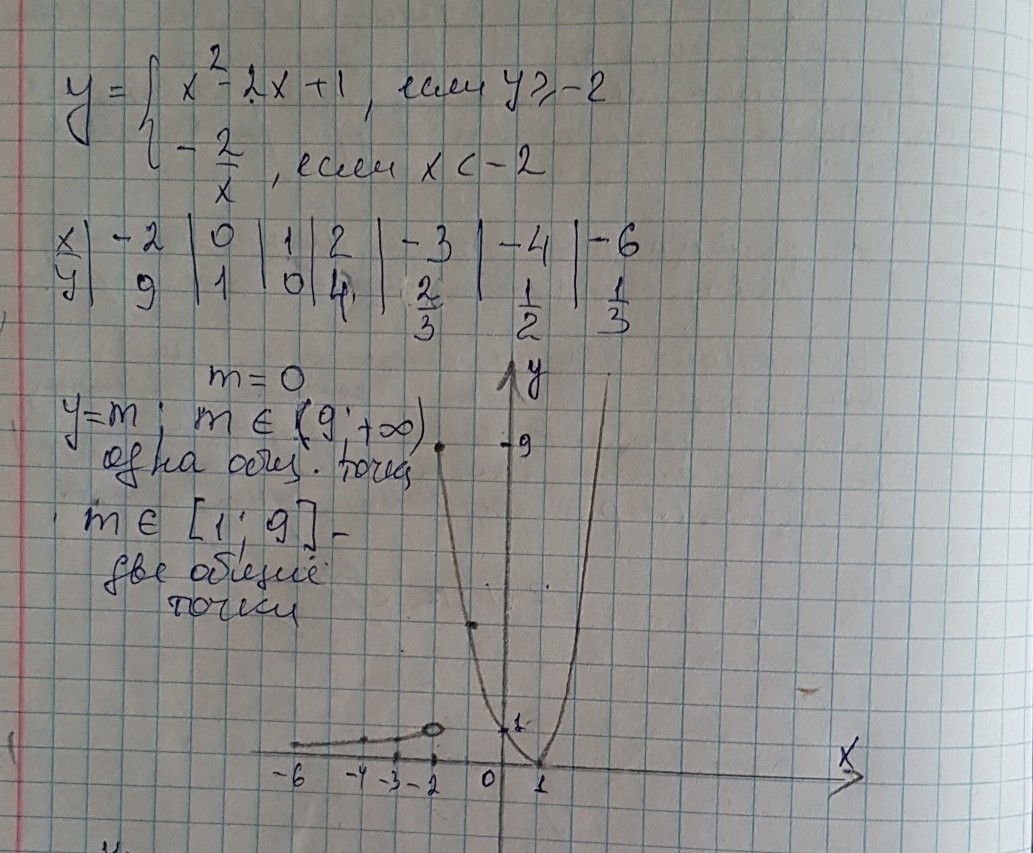 y = { x² - 2x + 1, если y ≥ -2
- 2/x, если x < -2
x | -2 | 0 | 1 | 2 | -3 | -4 | -6
y | 9 | 1 | 0 | 4 | 2/3 | 1/2 | 1/3
m = 0
y = m; m ∈ (9; +∞)
одна общ. точка
m ∈ [1; 9] -
две общие
точки
y
9
1
-6 -4 -3 -2 0 1
x